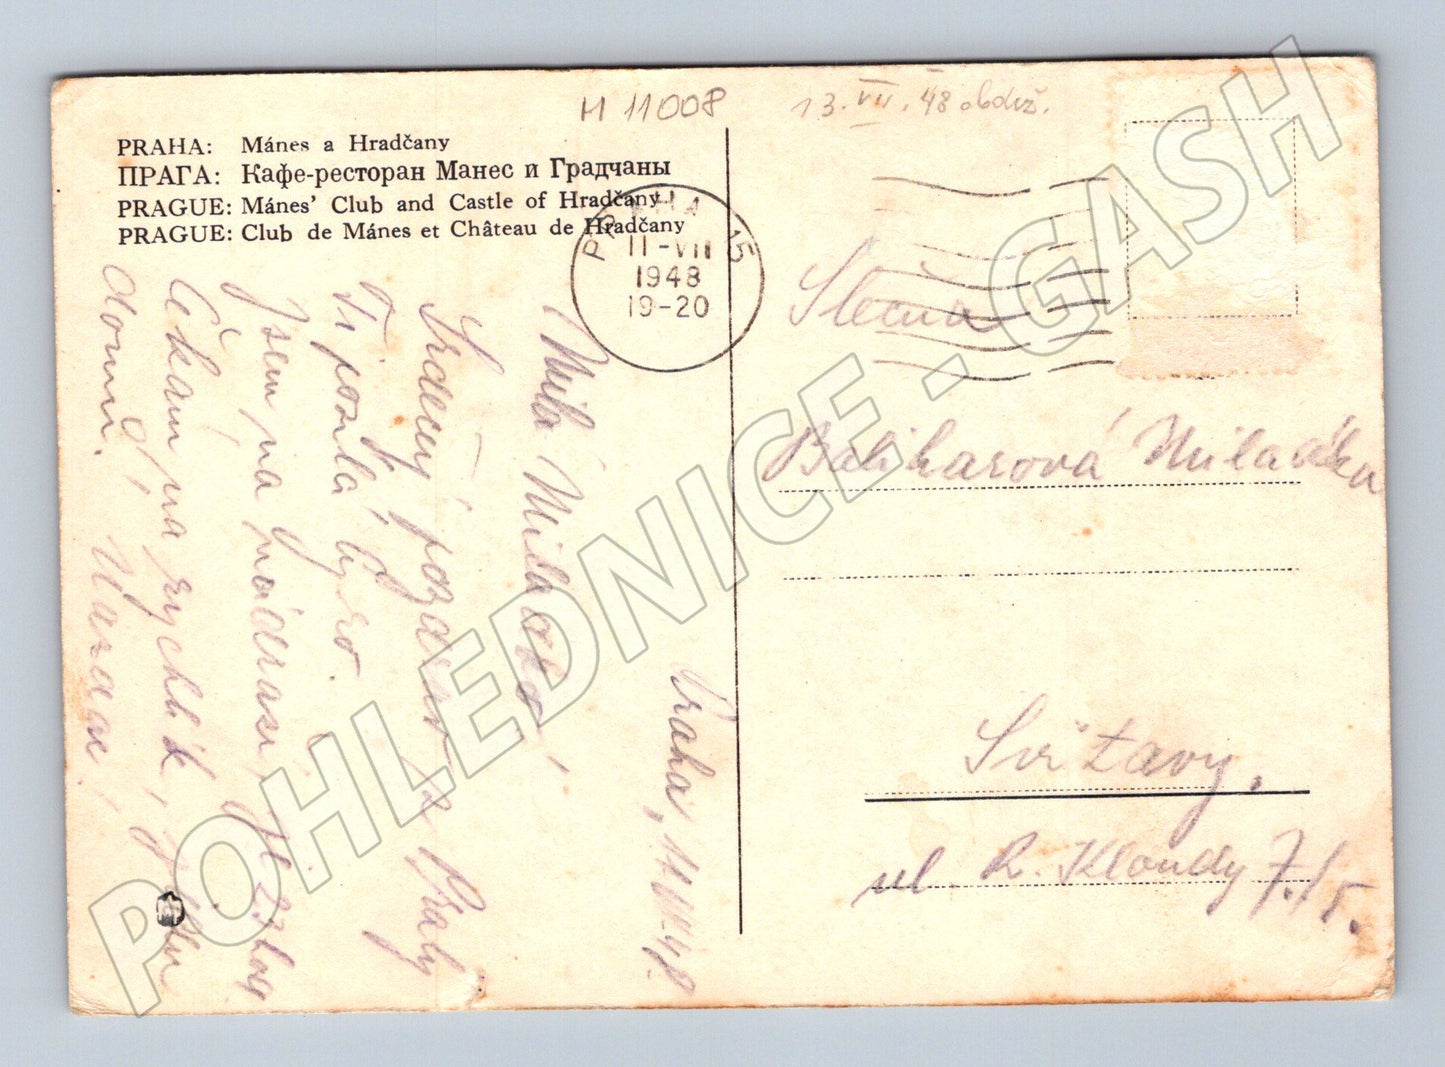 M 11008
13.VII.48 obdrž.
PRAHA: Mánes a Hradčany
ПРАГА: Кафе-ресторан Манес и Градчаны
PRAGUE: Mánes' Club and Castle of Hradčany
PRAGUE: Club de Mánes et Château de Hradčany
PRAHA 15
11-VII
1948
19-20
Praha, 11.VII.48.
Milá Miladko,
Srdečný pozdrav z Prahy
Ti posílá
Jsem na nádraží,
Čekám na rychlík, jedu
domů.
Slečna
Balcharová Miladka
Svitavy.
ul. R. Kloudy 7./
POHLEDNICE - GASH